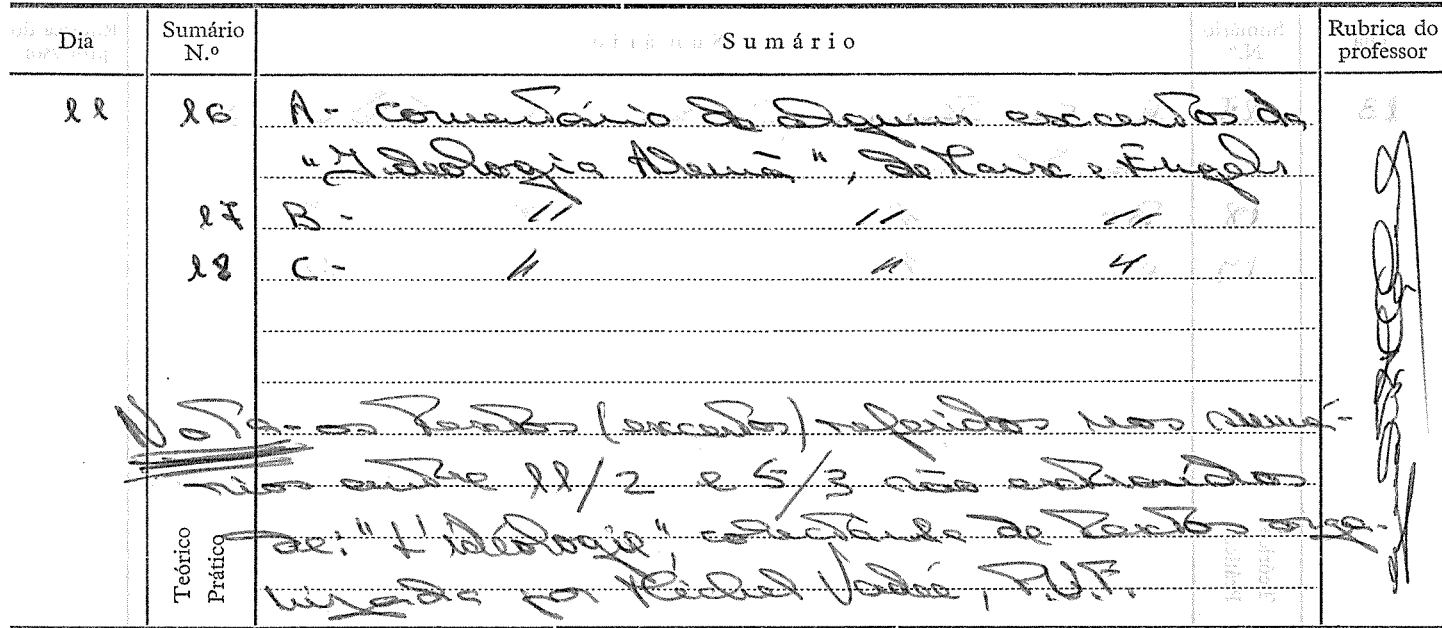 Dia Sumário N.º Sumário Rubrica do professor
11 16 A - comentário de alguns excertos da
"Ideologia Alemã", de Marx e Engels
17 B - " " "
18 C - " " "
Nota - os textos (excertos) referidos nos sumá-
rios entre 11/2 e 5/3 são extraídos
de: "L'idéologie", colectânea de textos orga-
nizada por Michel Vadée, P.U.F.
Teórico
Prático